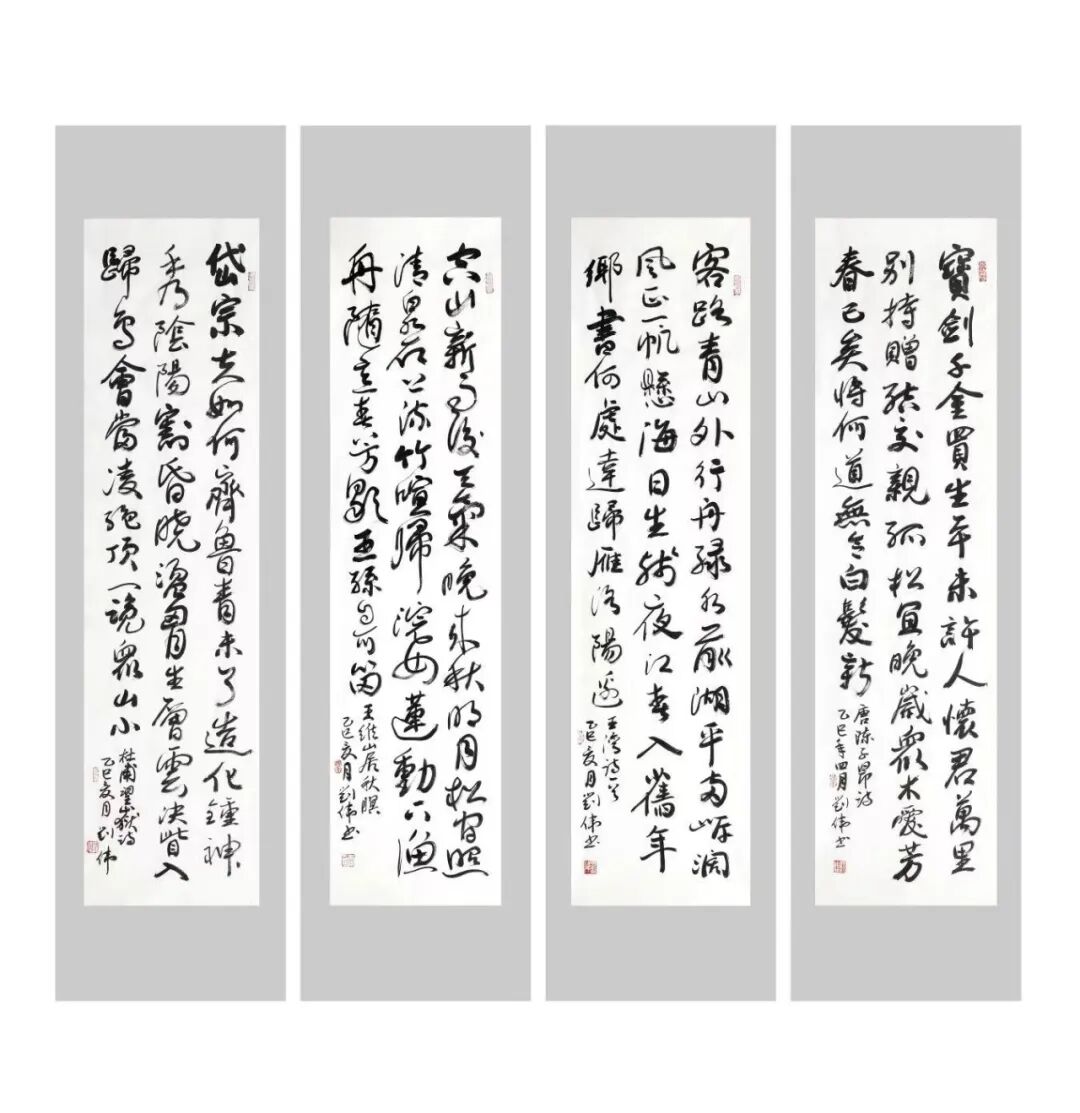 寶劍千金買生平未許人懷君萬里
別持贈結交親孤松宜晚歲衆木愛芳
春已矣將何道無令白髮新
唐陳子昂詩
乙巳年四月劉偉書
客路青山外行舟綠水前潮平兩岸闊
風正一帆懸海日生殘夜江春入舊年
鄉書何處達歸雁洛陽邊
王灣詩一首
乙巳夏月劉偉書
空山新雨後天氣晚來秋明月松間照
清泉石上流竹喧歸浣女蓮動下漁
舟隨意春芳歇王孫自可留
王維山居秋暝
乙巳夏月劉偉書
岱宗夫如何齊魯青未了造化鍾神
秀乃陰陽割昏曉盪胸生層雲決眥入
歸鳥會當凌絕頂一覽衆山小
杜甫望嶽詩
乙巳夏月劉偉